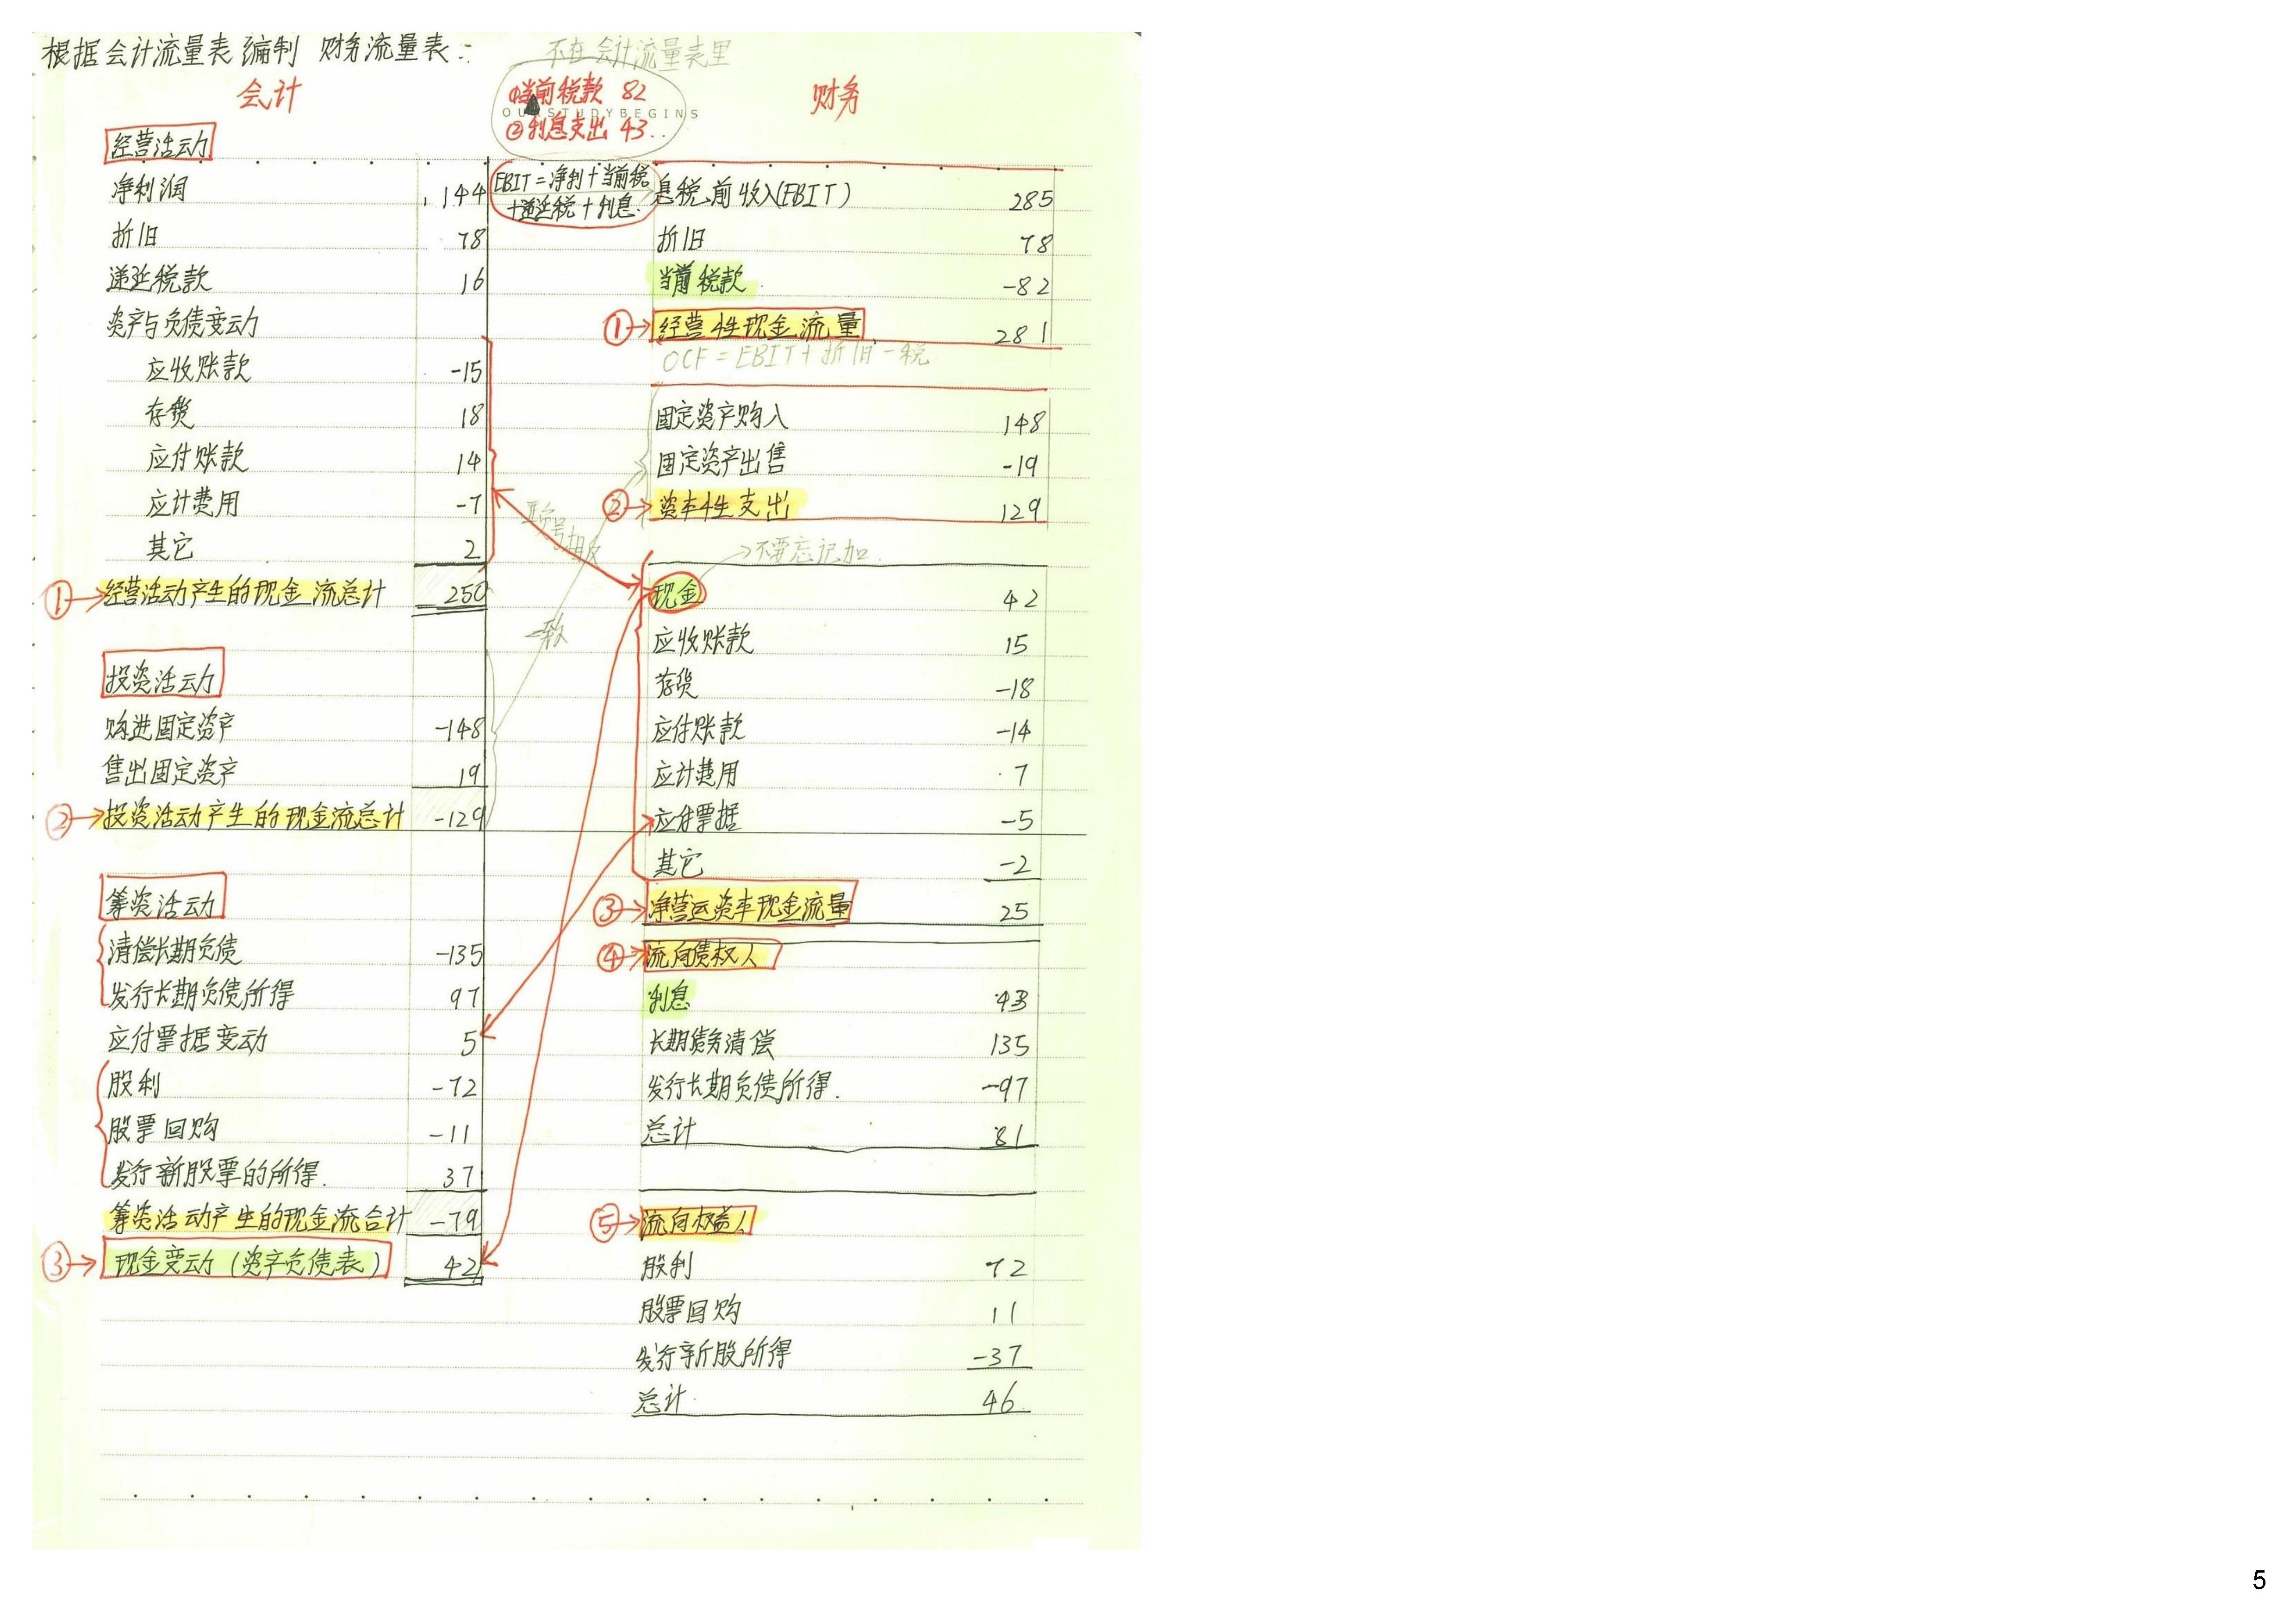 根据会计流量表编制 财务流量表：
不在会计流量表里
会计
①当前税款 82
OUR STUDY BEGINS
②利息支出 43..
财务
经营活动
净利润 144
折旧 78
递延税款 16
资产与负债变动
应收账款 -15
存货 18
应付账款 14
应计费用 -7
其它 2
①→经营活动产生的现金流总计 250
投资活动
购进固定资产 -148
售出固定资产 19
②→投资活动产生的现金流总计 -129
筹资活动
清偿长期负债 -135
发行长期负债所得 97
应付票据变动 5
股利 -72
股票回购 -11
发行新股票的所得. 37
筹资活动产生的现金流合计 -79
③→现金变动（资产负债表） 42
EBIT=净利+当前税
+递延税+利息.
正负号相反
一致
息税前收入(EBIT) 285
折旧 78
当前税款 -82
①→经营性现金流量 281
OCF=EBIT+折旧-税
固定资产购入 148
固定资产出售 -19
②→资本性支出 129
→不要忘记加.
现金 42
应收账款 15
存货 -18
应付账款 -14
应计费用 7
应付票据 -5
其它 -2
③→净营运资本现金流量 25
④→流向债权人
利息 43
长期债务清偿 135
发行长期负债所得. -97
总计 81
⑤→流向权益人
股利 72
股票回购 11
发行新股所得 -37
总计 46
5